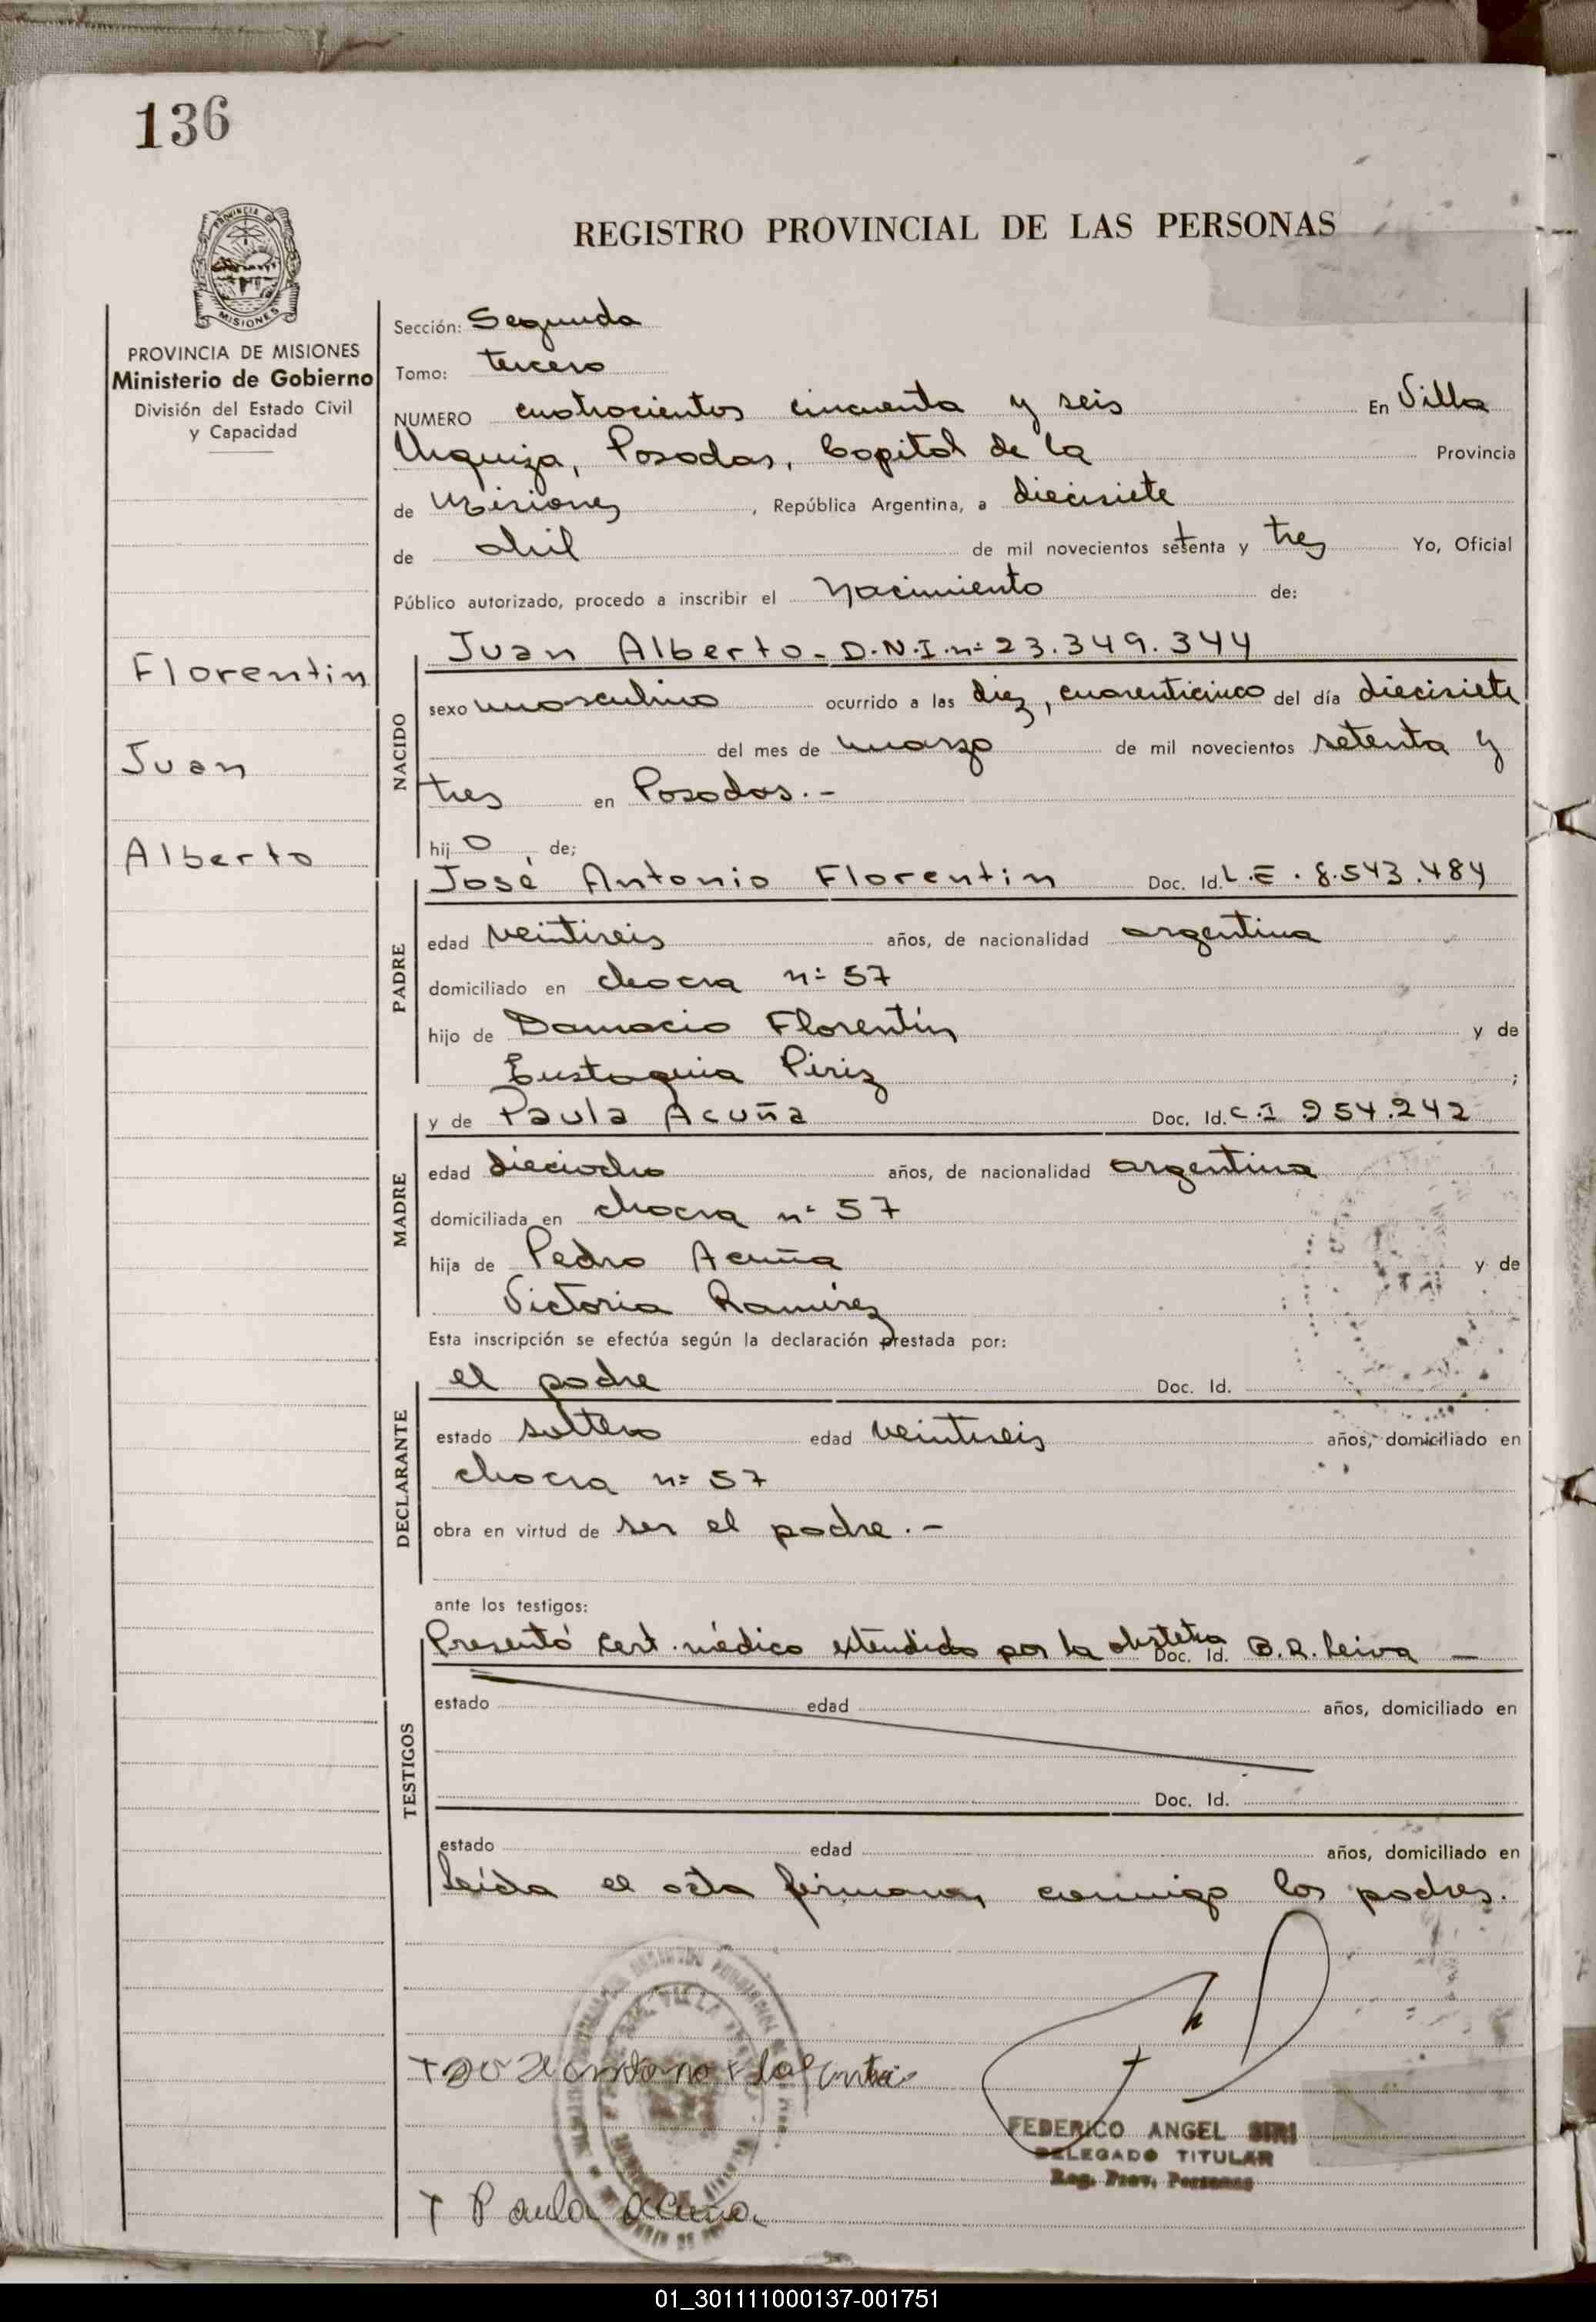 136
REGISTRO PROVINCIAL DE LAS PERSONAS
PROVINCIA DE MISIONES
MISIONES
PROVINCIA DE MISIONES
Ministerio de Gobierno
División del Estado Civil
y Capacidad
Florentin
Juan
Alberto
Sección: Segunda
Tomo: tercero
NUMERO cuatrocientos cincuenta y seis En Villa
Urquiza, Posadas, Capital de la Provincia
de Misiones, República Argentina, a diecisiete
de abril de mil novecientos setenta y tres Yo, Oficial
Público autorizado, procedo a inscribir el Nacimiento de:
Juan Alberto - D.N.I. nº 23.349.344
NACIDO
sexo masculino ocurrido a las diez, cuarenticinco del día diecisiete
del mes de marzo de mil novecientos setenta y
tres en Posadas.-
hijo de;
PADRE
José Antonio Florentin Doc. Id. L.E. 8.543.484
edad veintiseis años, de nacionalidad argentina
domiciliado en chacra nº 57
hijo de Damacio Florentín y de
Eustaquia Piriz ;
MADRE
y de Paula Acuña Doc. Id. C.I 254.242
edad dieciocho años, de nacionalidad argentina
domiciliada en chacra nº 57
hija de Pedro Acuña y de
Victoria Ramírez
Esta inscripción se efectúa según la declaración prestada por:
DECLARANTE
el padre Doc. Id.
estado soltero edad veintiseis años, domiciliado en
chacra nº 57
obra en virtud de ser el padre.-
ante los testigos:
TESTIGOS
Presentó cert. médico extendido por la obstetra Doc. Id. B.R. Leiva —
estado edad años, domiciliado en
Doc. Id.
estado edad años, domiciliado en
Leída el acta firman, conmigo los padres.
FEDERICO ANGEL SIRI
DELEGADO TITULAR
Reg. Prov. Personas
+ Paula Acuña
01_301111000137-001751